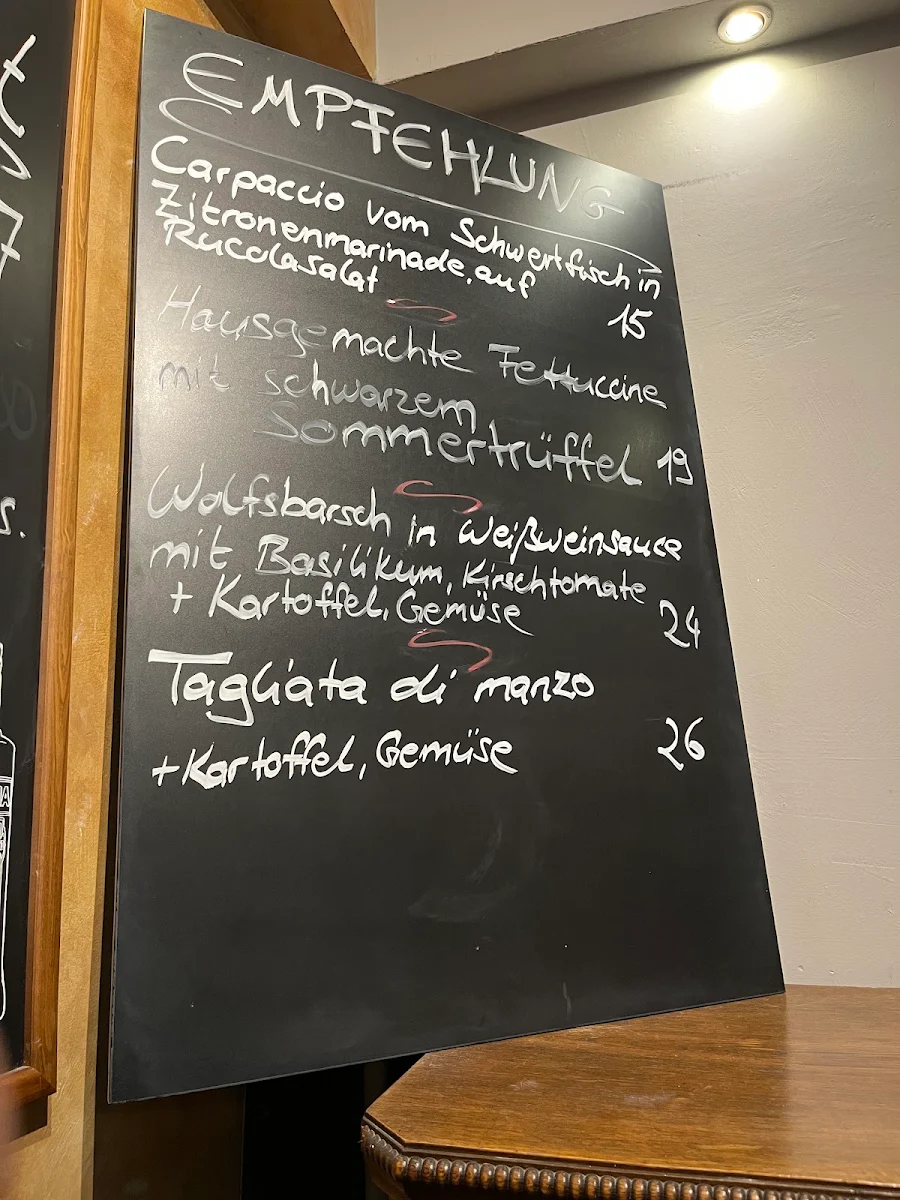 EMPFEHLUNG
Carpaccio vom Schwertfisch in
Zitronenmarinade auf
Rucolasalat
15
Hausgemachte Fettuccine
mit schwarzem
Sommertrüffel 19
Wolfsbarsch in Weißweinsauce
mit Basilikum, Kirschtomate
+ Kartoffel, Gemüse
24
Tagliata di manzo
+Kartoffel, Gemüse
26